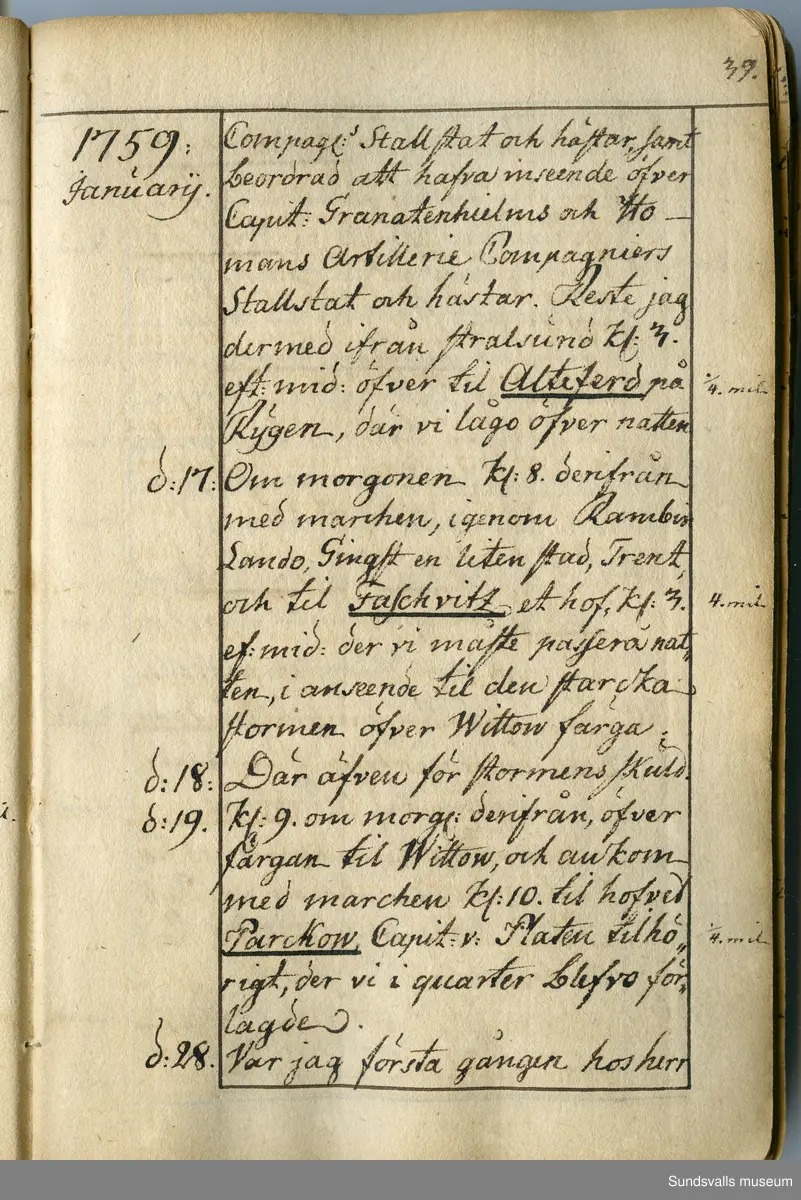 39.
1759:
Januarÿ.
Compagl:s Stallstat och hästar, samt
beordrad att hafva inseende öfver
Capit: Granatenhielms och Ho—
mans Artillerie Compagniers
Stallstat och hästar. Reste jag
dermed ifrån stralsund kl: 3.
eft: mid: öfver til Alteferd på
1/4. mil
Rÿgen, där vi lågo öfver natten
d: 17:
Om morgonen kl: 8. derifrån
med marchen, igenom Rambin
Lando, Gingst en liten stad, Trent,
och til Faschvitz et hof, kl: 3.
4. mil
ef: mid: der vi måste passera nat„
ten, i anseende til den starcka
stormen öfver Wittow färga.
d: 18:
Där äfven för stormens skuld.
d: 19.
kl: 9. om morgl: derifrån, öfver
färgan til Wittow, och ankom
med marchen kl: 10. til hofvet
Parckow, Capit: v: Platen tilhö„
1/4. mil
rigt, der vi i quarter blefvo för„
lagde.
d: 28.
Var jag första gången hos herr
Sundsvalls museum